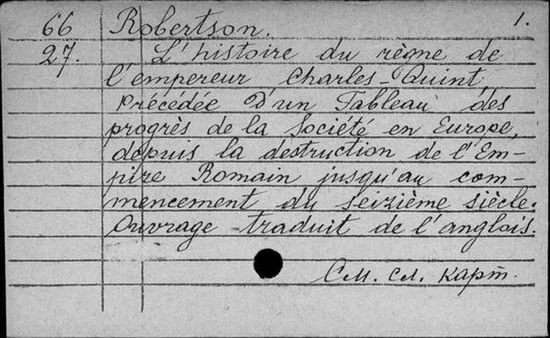 66 Robertson. 1.
27. L'histoire du règne de
l'empereur Charles-Quint
Précédée d'un Tableau des
progrès de la Société en Europe,
depuis la destruction de l'Em-
pire Romain jusqu'au com-
mencement du seizième siècle.
Ouvrage traduit de l'anglois.
См. сл. карт.